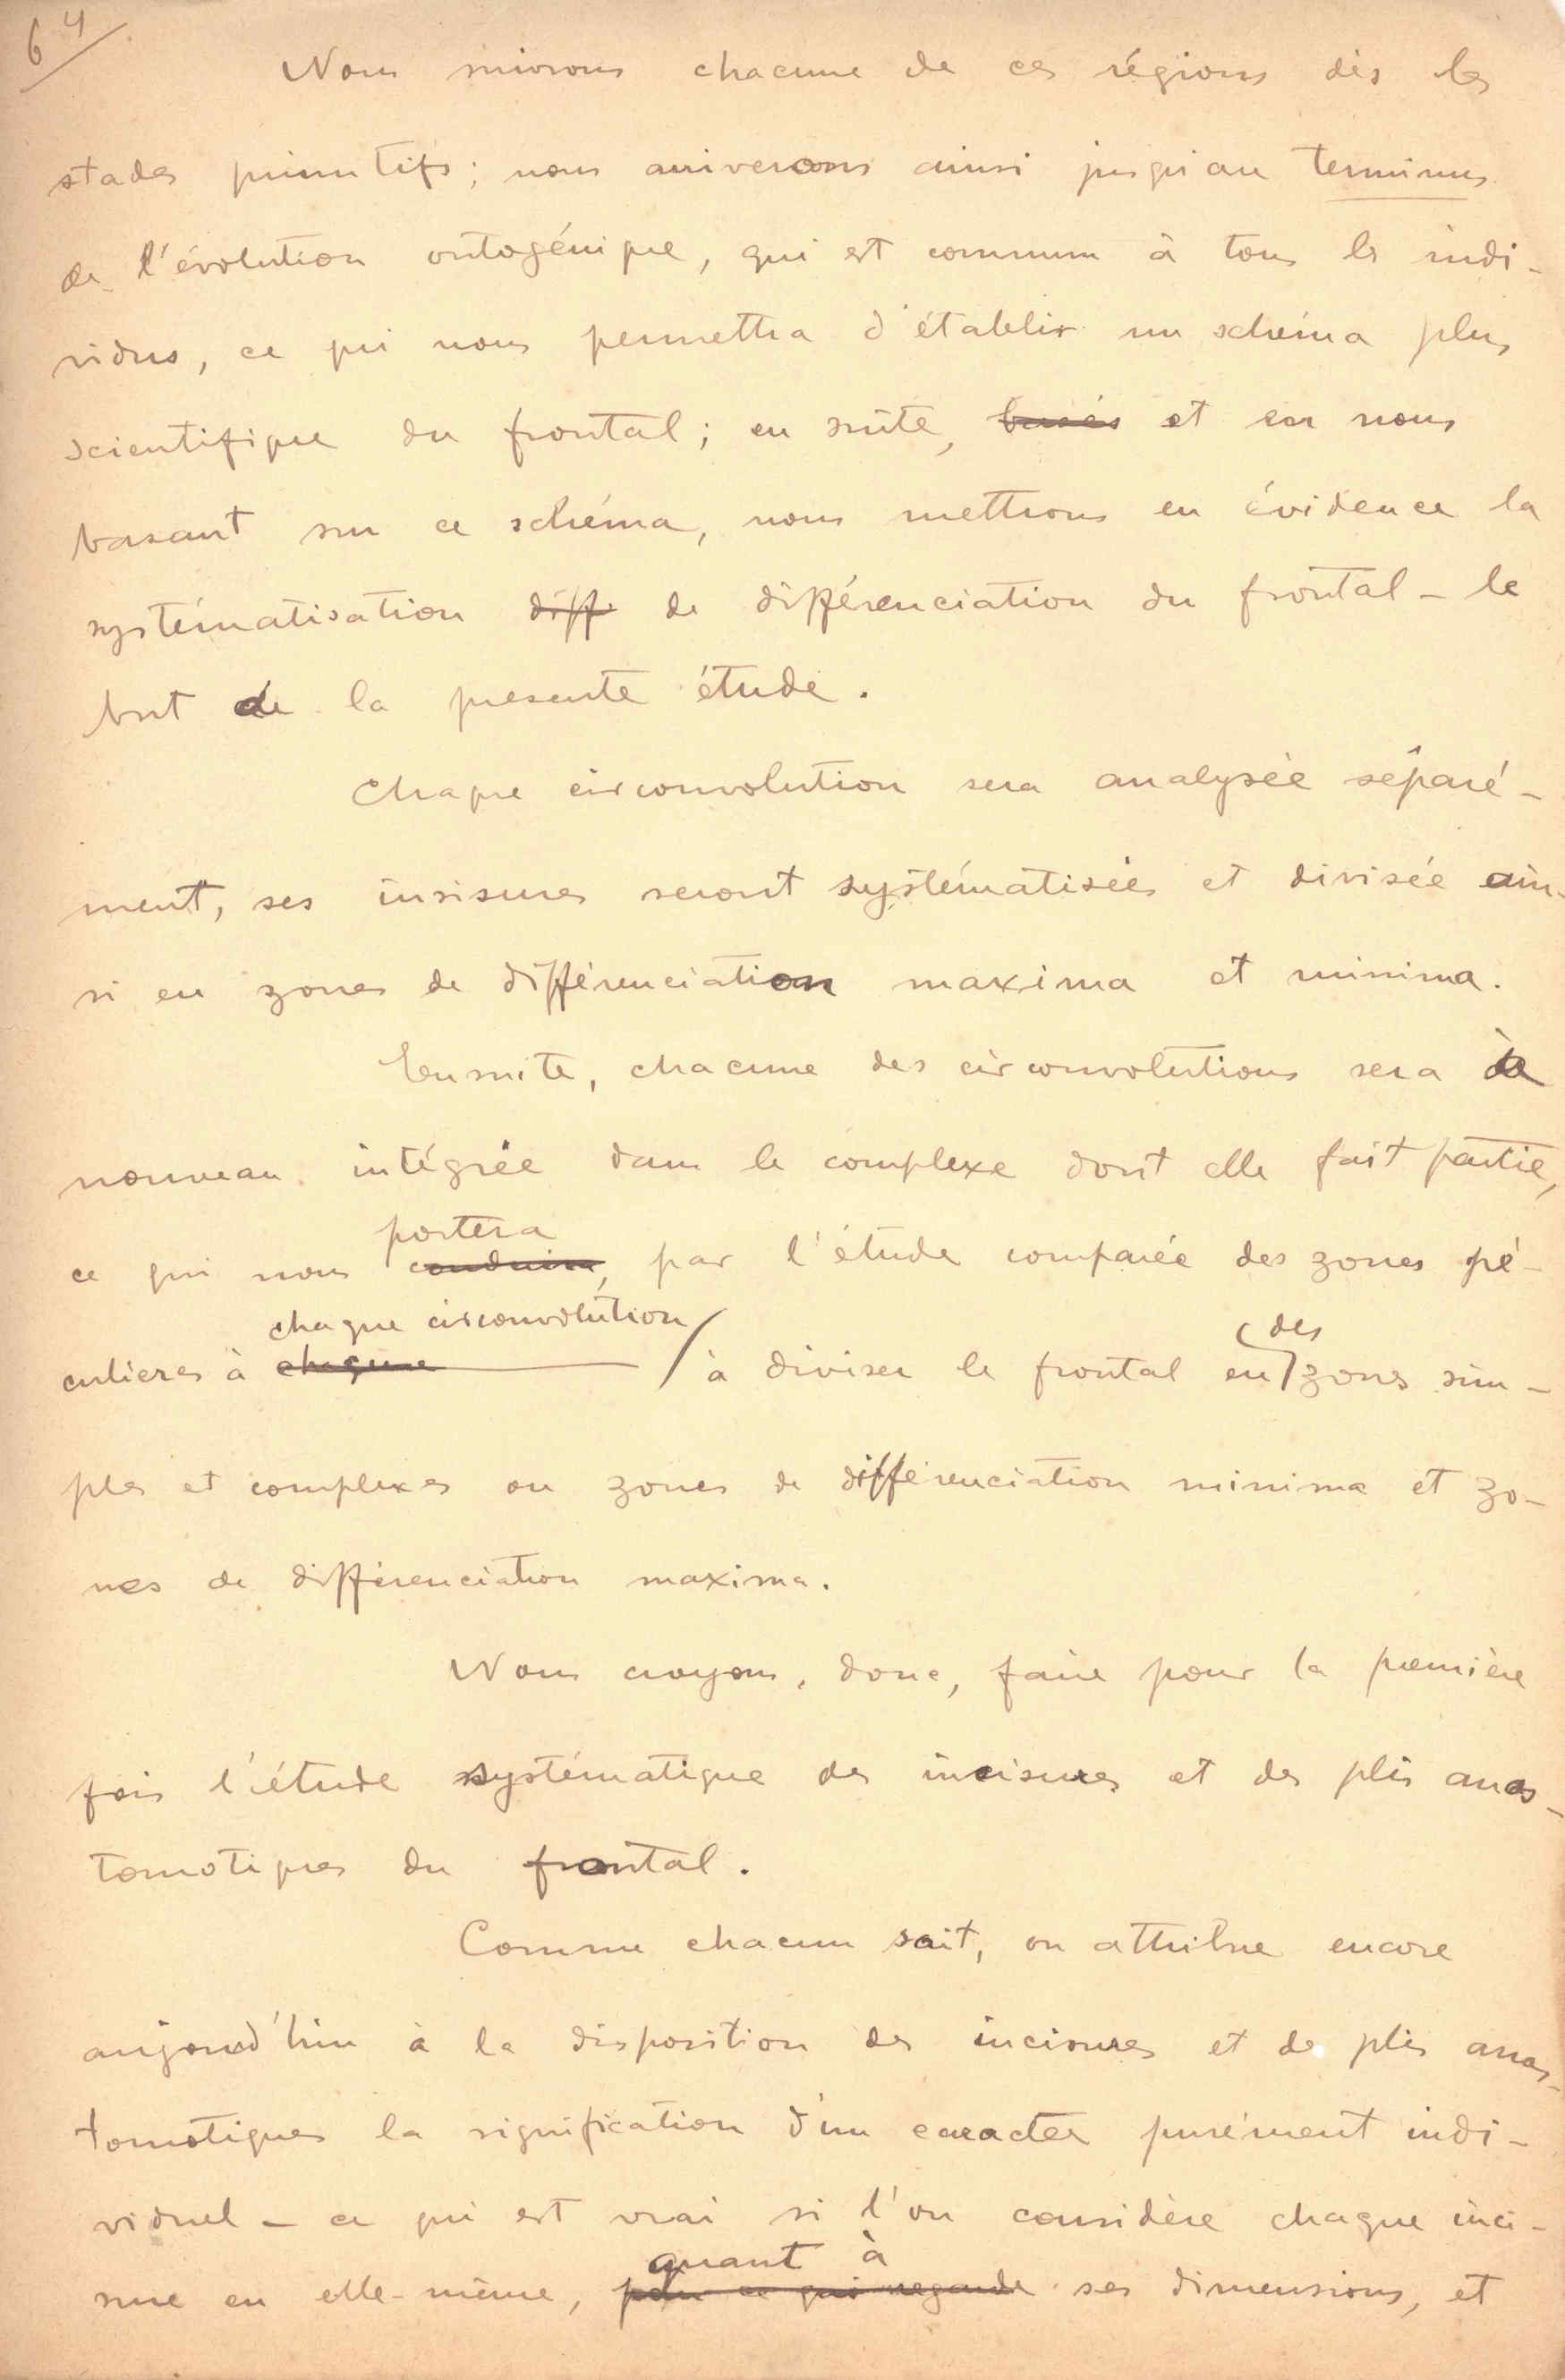 64
Nous suivrons chacune de ces régions dès les
stades primitifs; nous arriverons ainsi jusqu'au terminus
de l'évolution ontogénique, qui est commun à tous les indi-
vidus, ce qui nous permettra d'établir un schéma plus
scientifique du frontal; en suite, basés et en nous
basant sur ce schéma, nous mettrons en évidence la
systématisation diff de différenciation du frontal - le
but de la presente étude.
Chaque circonvolution sera analysée séparé-
ment, ses insisures seront systématisées et divisée ain-
si en zones de différenciation maxima et minima.
Ensuite, chacune des circonvolutions sera de
nouveau intégrée dans le complexe dont elle fait partie,
portera
ce qui nous conduira, par l'étude comparée des zones pé-
chaque circonvolution
des
culieres à chaqune à diviser le frontal en zones sim-
ples et complexes ou zones de différenciation minima et zo-
nes de différenciation maxima.
Nous croyons, donc, faire pour la première
fois l'étude systématique des incisures et des plis anas-
tomotiques du frontal.
Comme chacun sait, on attribue encore
aujourd'hui à la disposition des incisures et de plis anas-
tomotiques la signification d'un caracter purément indi-
viduel - ce qui est vrai si l'on considère chaque inci-
quant à
sure en elle-même, pour ce qui regarde ses dimensions, et